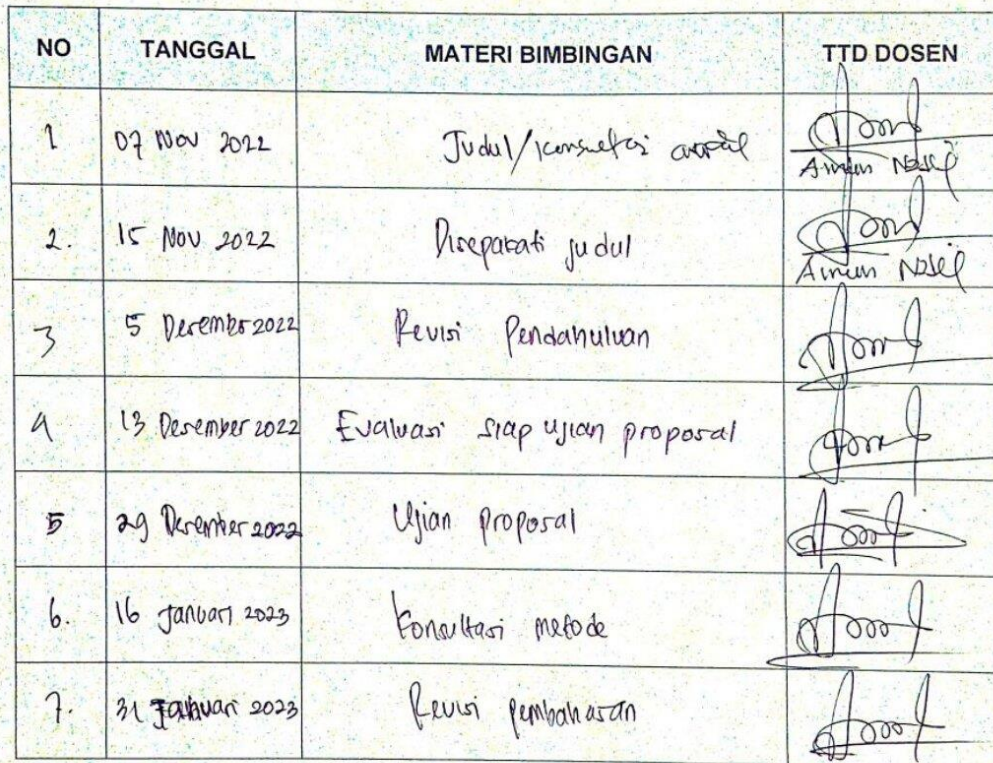 NO TANGGAL MATERI BIMBINGAN TTD DOSEN
1 07 Nov 2022 Judul/konsultasi
2. 15 Nov 2022 Disepakati judul
3 5 Desember 2022 Revisi Pendahuluan
4 13 Desember 2022 Evaluasi siap ujian proposal
5 29 Desember 2022 Ujian proposal
6. 16 Januari 2023 Konsultasi metode
7. 31 Januari 2023 Revisi pembahasan